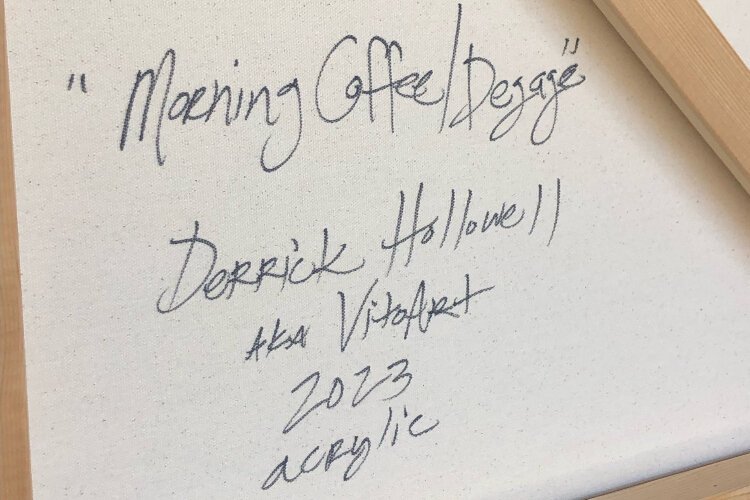 "Morning Coffee/Degagé"
Derrick Hollowell
AKA VitoArt
2023
acrylic